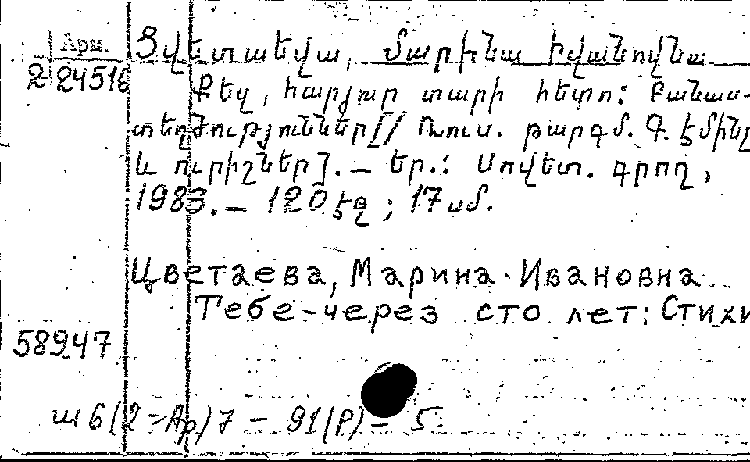 Арм.
2 24516
Ցվետաևա, Մարինա Իվանովնա
Քեզ, հարյուր տարի հետո: Բանաս-
տեղծություններ[/ Ռուս. թարգմ. Գ. Էմին
և ուրիշներ]. — Եր.: Սովետ. գրող,
1983. — 120 էջ; 17 սմ.
Цветаева, Марина Ивановна
Тебе - через сто лет: Стихи
58947
ш6(2=Ар)7 — 91(Р) — 5